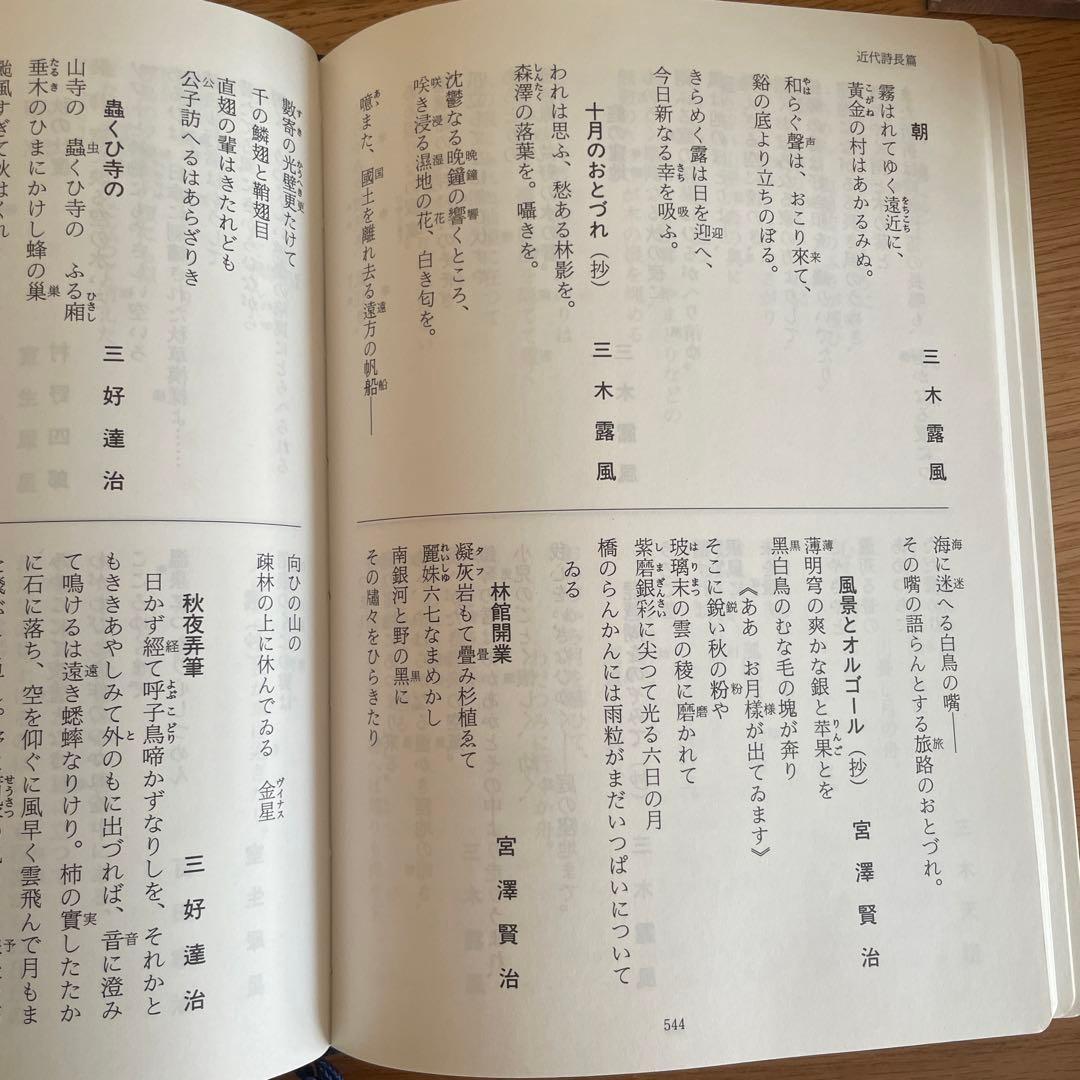 近代詩長篇
朝
三木露風
霧はれてゆく遠近に、
黃金の村はあかるみぬ。
和らぐ聲は、おこり來て、
谿の底より立ちのぼる。
きらめく露は日を迎へ、
今日新なる幸を吸ふ。
十月のおとづれ（抄）
三木露風
われは思ふ、愁ある林影を。
森澤の落葉を。囁きを。
沈鬱なる晩鐘の響くところ、
咲き浸る濕地の花、白き匂を。
噫また、國土を離れ去る遠方の帆船――
海に迷へる白鳥の嘴――
その嘴の語らんとする旅路のおとづれ。
風景とオルゴール（抄）
宮澤賢治
薄明穹の爽かな銀と苹果とを
黑白鳥のむな毛の塊が奔り
《ああ　お月樣が出てゐます》
そこに銳い秋の粉や
玻璃末の雲の稜に磨かれて
紫磨銀彩に尖つて光る六日の月
橋のらんかんには雨粒がまだいつぱいについて
ゐる
林館開業
宮澤賢治
凝灰岩もて疊み杉植ゑて
麗姝六七なまめかし
南銀河と野の黑に
その牖々をひらきたり
544
數寄の光壁更たけて
千の鱗翅と鞘翅目
直翅の輩はきたれども
公子訪へるはあらざりき
蟲くひ寺の
三好達治
山寺の　蟲くひ寺の　ふる廂
垂木のひまにかけし蜂の巢
颱風すぎて秋はくれ
向ひの山の
疎林の上に休んでゐる　金星
秋夜弄筆
三好達治
日かず經て呼子鳥啼かずなりしを、それかと
もききあやしみて外のもに出づれば、音に澄み
て鳴けるは遠き蟋蟀なりけり。柿の實したたか
に石に落ち、空を仰ぐに風早く雲飛んで月もま